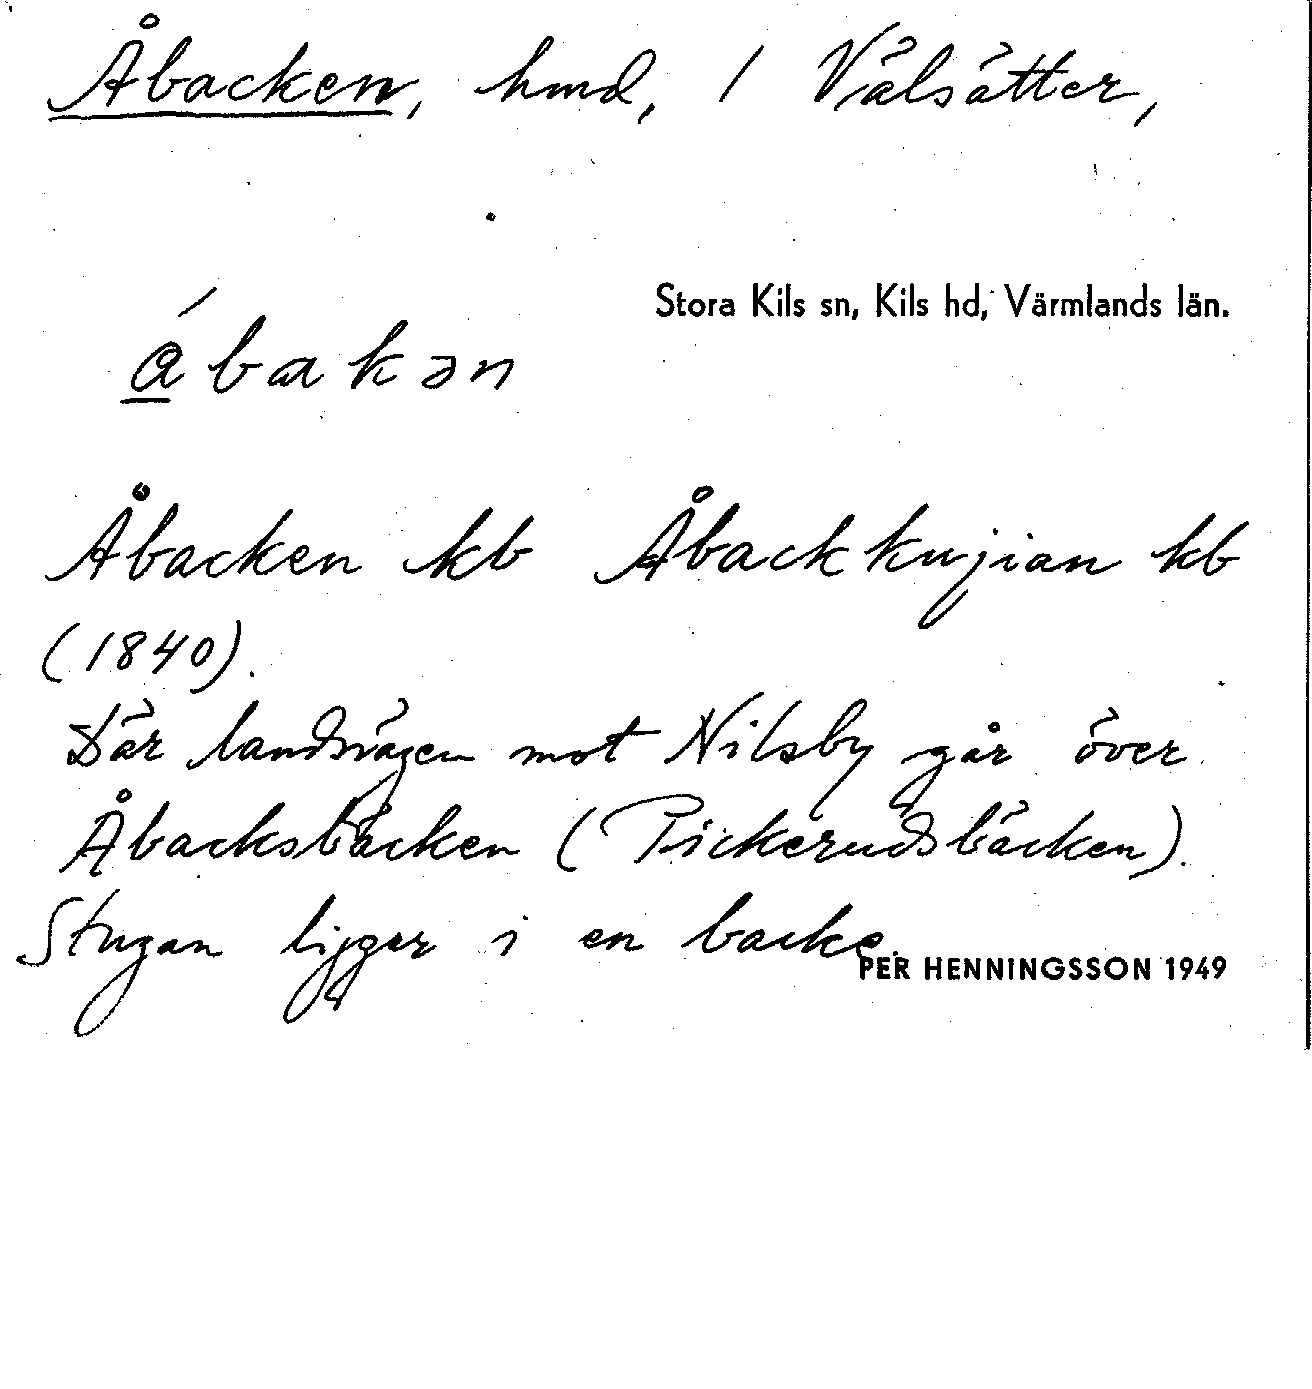 Åbacken, hmd, / Välsätter,
Stora Kils sn, Kils hd, Värmlands län.
åbakən
Åbacken kb Åbackkujian kb
(1840).
Där landsvägen mot Nilsby går över
Åbacksbäcken (Pickerudsbäcken).
Stugan ligger i en backe.
PER HENNINGSSON 1949